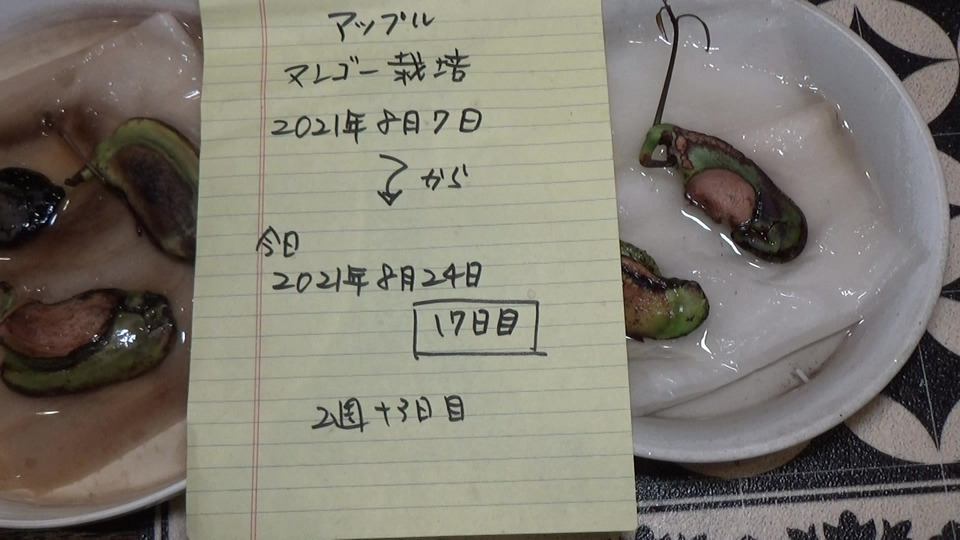 アップル
マンゴー栽培
2021年8月7日
から
今日
2021年8月24日
17日目
2週+3日目